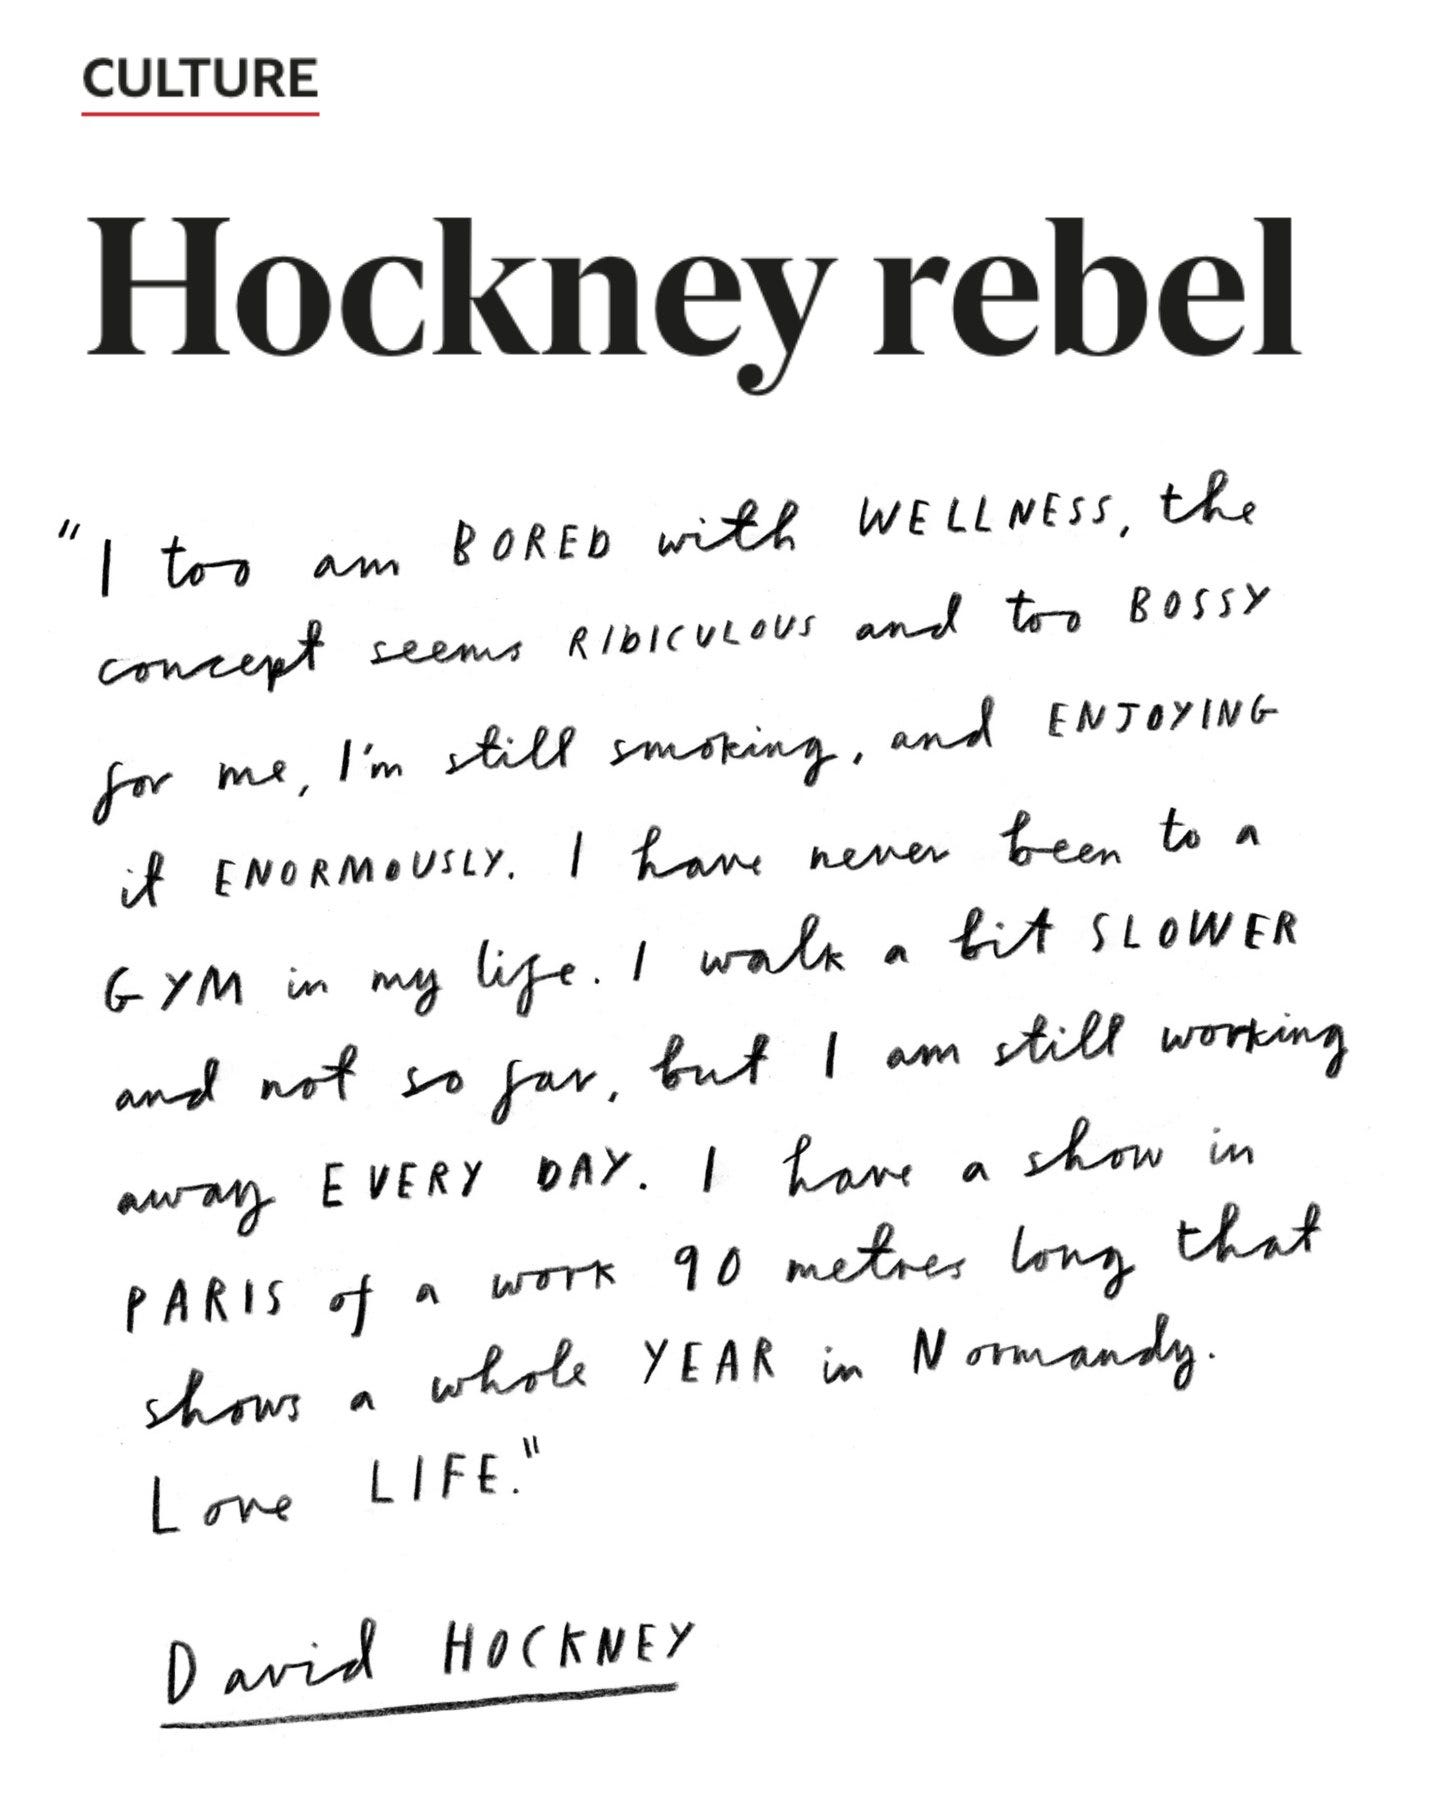 CULTURE
Hockney rebel
"I too am BORED with WELLNESS, the
concept seems RIDICULOUS and too BOSSY
for me, I'm still smoking, and ENJOYING
it ENORMOUSLY. I have never been to a
GYM in my life. I walk a bit SLOWER
and not so far, but I am still working
away EVERY DAY. I have a show in
PARIS of a work 90 metres long that
shows a whole YEAR in Normandy.
Love LIFE."
David HOCKNEY